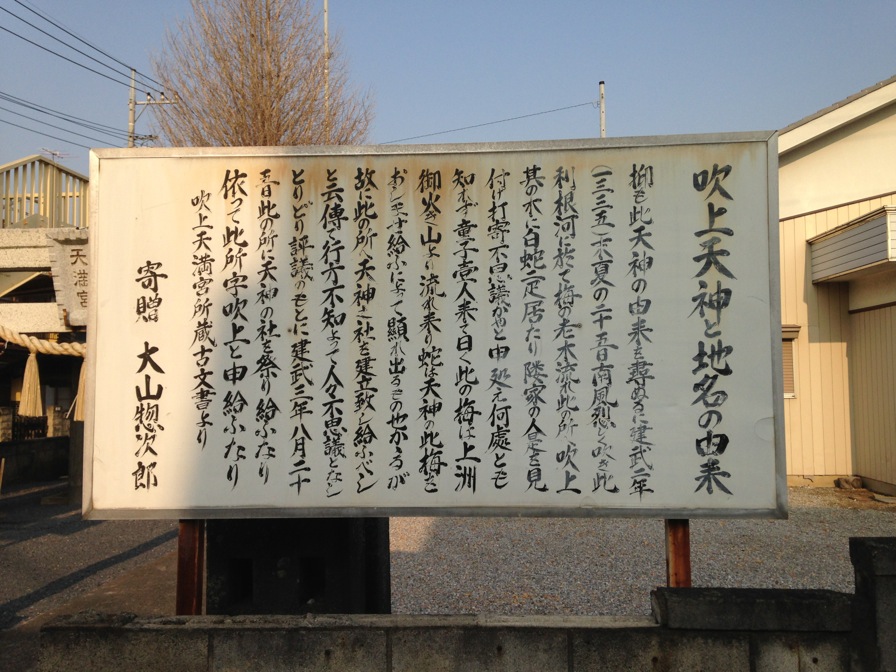 吹上天神と地名の由来
抑も此天神の由来を尋ぬるに建武二年
(一三三五)六夏の二十五日南風烈しく吹き此
利根河に於て梅の老木流れ此の所へ吹上
其の木に白蛇一疋居たり隣家の人是を見
付け打寄不思議がやと申処え何處とも
知れず童子壹人来て曰く此の梅は上洲
御火き山より流れ来り蛇は天神の此梅を
おしませ給ふによつて顯れ出るもの也かるが
故に此の所へ天神之社を建立致し給ふべし
と云傳へ行方不知よつて人々不思議となし
とりどり評議のもとに建武二年八月二十
五日此の所に天神の社を祭り給ふなり
依つて此所字吹上と申給ふたり
吹上天満宮所蔵古文書より
寄贈 大山惣次郎
天満宮